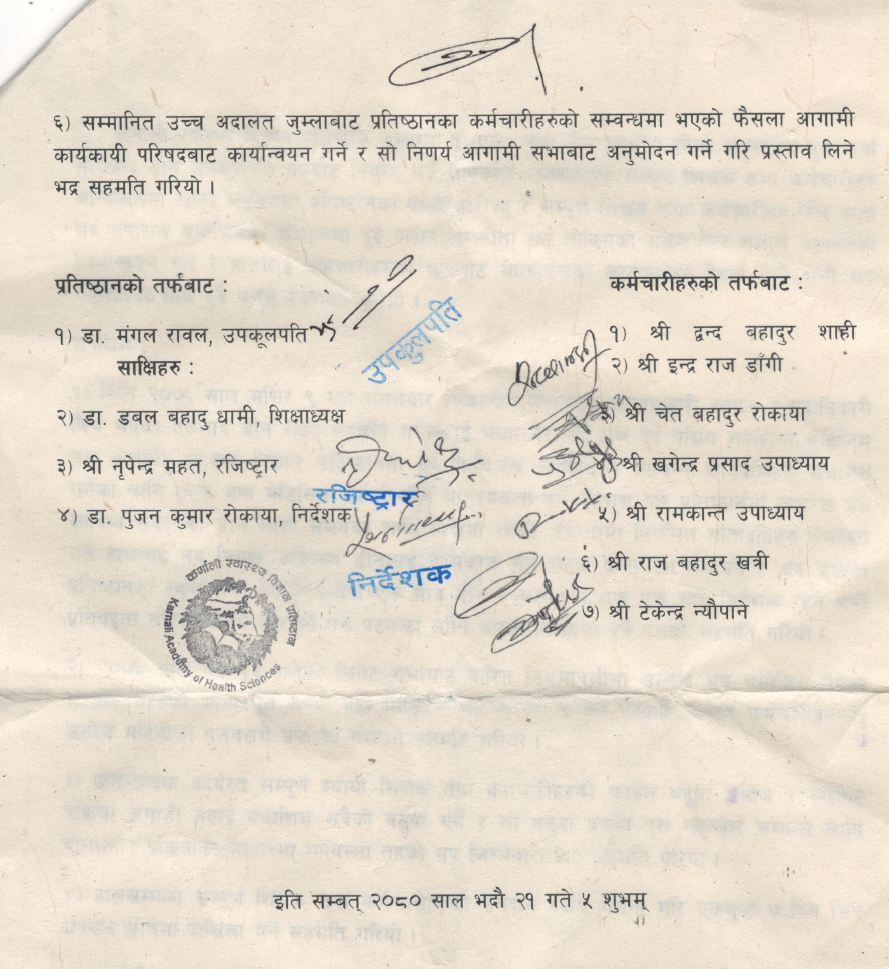 ६) सम्मानित उच्च अदालत जुम्लाबाट प्रतिष्ठानका कर्मचारीहरुको सम्वन्धमा भएको फैसला आगामी
कार्यकायी परिषदबाट कार्यान्वयन गर्ने र सो निणर्य आगामी सभाबाट अनुमोदन गर्ने गरि प्रस्ताव लिने
भद्र सहमति गरियो ।
प्रतिष्ठानको तर्फबाट :
१) डा. मंगल रावल, उपकूलपति
साक्षिहरु :
२) डा. डबल बहादु धामी, शिक्षाध्यक्ष
३) श्री नृपेन्द्र महत, रजिष्ट्रार
४) डा. पुजन कुमार रोकाया, निर्देशक
उपकुलपति
रजिष्ट्रार
निर्देशक
कर्णाली स्वास्थ्य विज्ञान प्रतिष्ठान
Karnali Academy of Health Sciences
कर्मचारीहरुको तर्फबाट :
१) श्री द्वन्द बहादुर शाही
२) श्री इन्द्र राज डाँगी
३) श्री चेत बहादुर रोकाया
४) श्री खगेन्द्र प्रसाद उपाध्याय
५) श्री रामकान्त उपाध्याय
६) श्री राज बहादुर खत्री
७) श्री टेकेन्द्र न्यौपाने
इति सम्बत् २०८० साल भदौ २१ गते ५ शुभम्